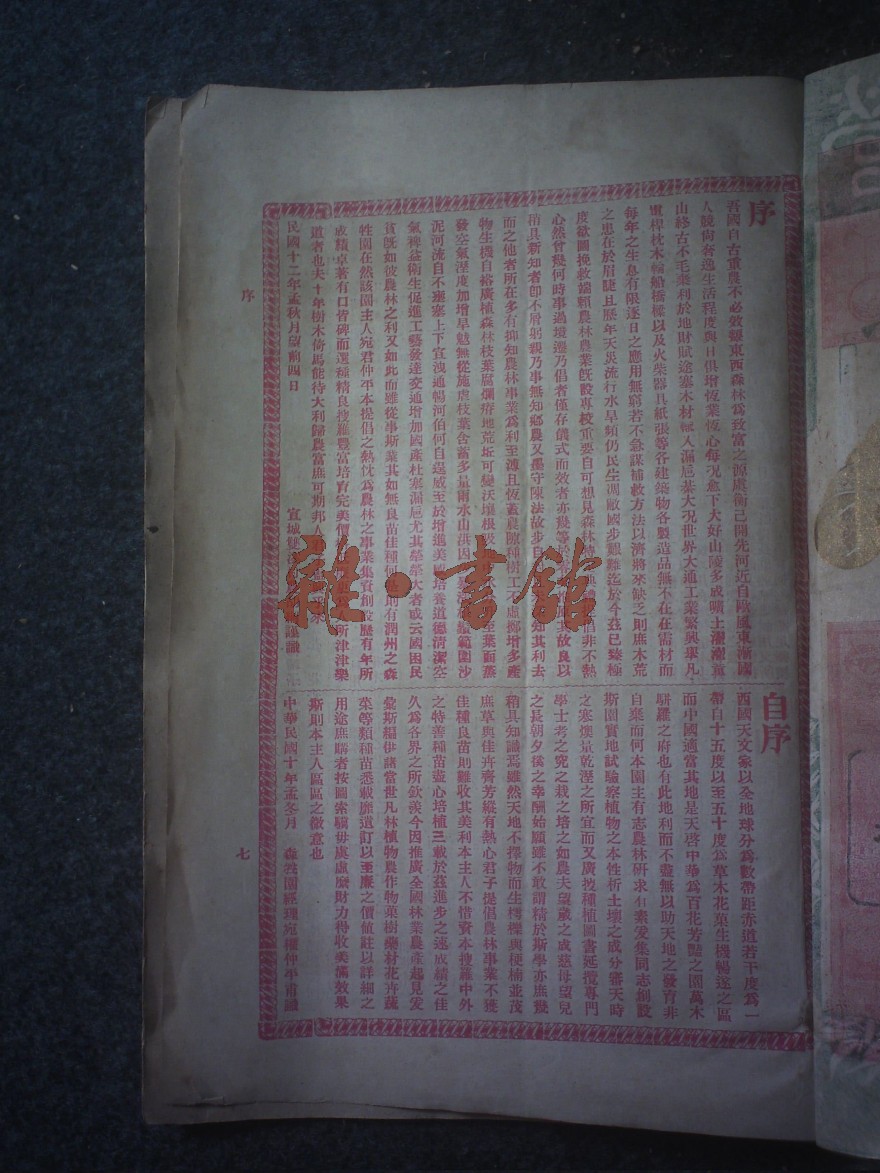 序
吾國自古重農不必效顰東西森林爲致富之源處衛已開先河近自歐風東漸國
人競向奢逸生活程度與日俱增恆業恆心每况愈下大好山陵多成曠土濯濯童
山終古不毛棄利於地財賦途塞木材輸入漏巵綦大况世界大通工業繁興舉凡
電桿枕木輪船橋樑以及火柴器具紙張等各建築物各製造品無不在在需材而
每年之生息有限逐日之應用無窮若不急謀補救方法以濟將來缺乏則庶木荒
之患在於眉睫且歷年天災流行水旱頻仍民生凋敝國步艱難迄於今茲已臻極
度歟圖挽救端賴農林農業旣設專校重要自可想見森林特 非不熱
心然曾幾何時事過境遷乃倡者僅存儀式而效者亦襪等於 故良以
稍具新知者卽不屑躬親乃事無知鄉農又墨守陳法故步自 知其利去
而之他者所在多有抑知農林事業爲利至溥且恆蓋農隙種樹工不虛擲增多產
物生機自裕廣植森林枝葉腐爛瘠地荒坵可變沃壤根吸 葉面蒸
發空氣溼度加增旱魃無從施虐枝葉含蓄多量雨水山洪因 範圍沙
泥河流自不壅塞上下宣洩通暢河伯何自逞威至於增進美國培養道德清潔空
氣裨益衛生促進工藝發達交通增加國產杜塞漏巵尤其犖犖大者或云國困民
貧旣如彼農林之利又如此而雖從事斯業其如無良苗佳種何 則有潤州之森
牲園在然該園主人宛君仲平本提倡之熱忱爲農林之事業集資創設歷有年所
成績卓著有口皆碑而選種精良搜羅豐富培育完美價 所津津樂
道者也夫十年樹木倚馬能待大利歸農富庶可期邦人
民國十二年孟秋月望前四日 宣城 謹識
自序
西國天文家以全地球分爲數帶距赤道若干度爲一
帶自十五度以至五十度爲草木花菓生機暢遂之區
而中國適當其地是天啓中華爲百花芳豔之園萬木
駢羅之府也有此地利而不盡無以助天地之發育非
自棄而何本園主有志農林研求有素爰集同志創設
斯園實地試驗察植物之本性析土壤之成分審天時
之寒燠量乾溼之所宜而又廣搜種植圖書延攬專門
學士考之究之栽之培之如農夫望歲之成慈母望兒
之長朝夕徯之幸酬始願雖不敢謂精於斯學亦庶幾
稍具知識焉雖然天地不擇物而生樗櫟與楩楠並茂
庶草與佳卉齊芳縱有熱心君子提倡農林事業不獲
佳種良苗則難收其美利本主人不惜資本搜羅中外
之特善種苗盡心培植三載於茲進步之速成績之佳
久爲各界之所欽羨今因推廣全國林業農產起見爰
彙斯編俾諸當世凡林植物農作物菓樹藥材花卉蔬
菜等類種苗悉載靡遺訂以至廉之價值註以詳細之
用途庶購者按圖索驥毋虞虛糜財力得收美滿效果
斯則本主人區區之微意也
中華民國十年孟冬月 森茂園經理宛權仲平甫識
序
七
雜·書館